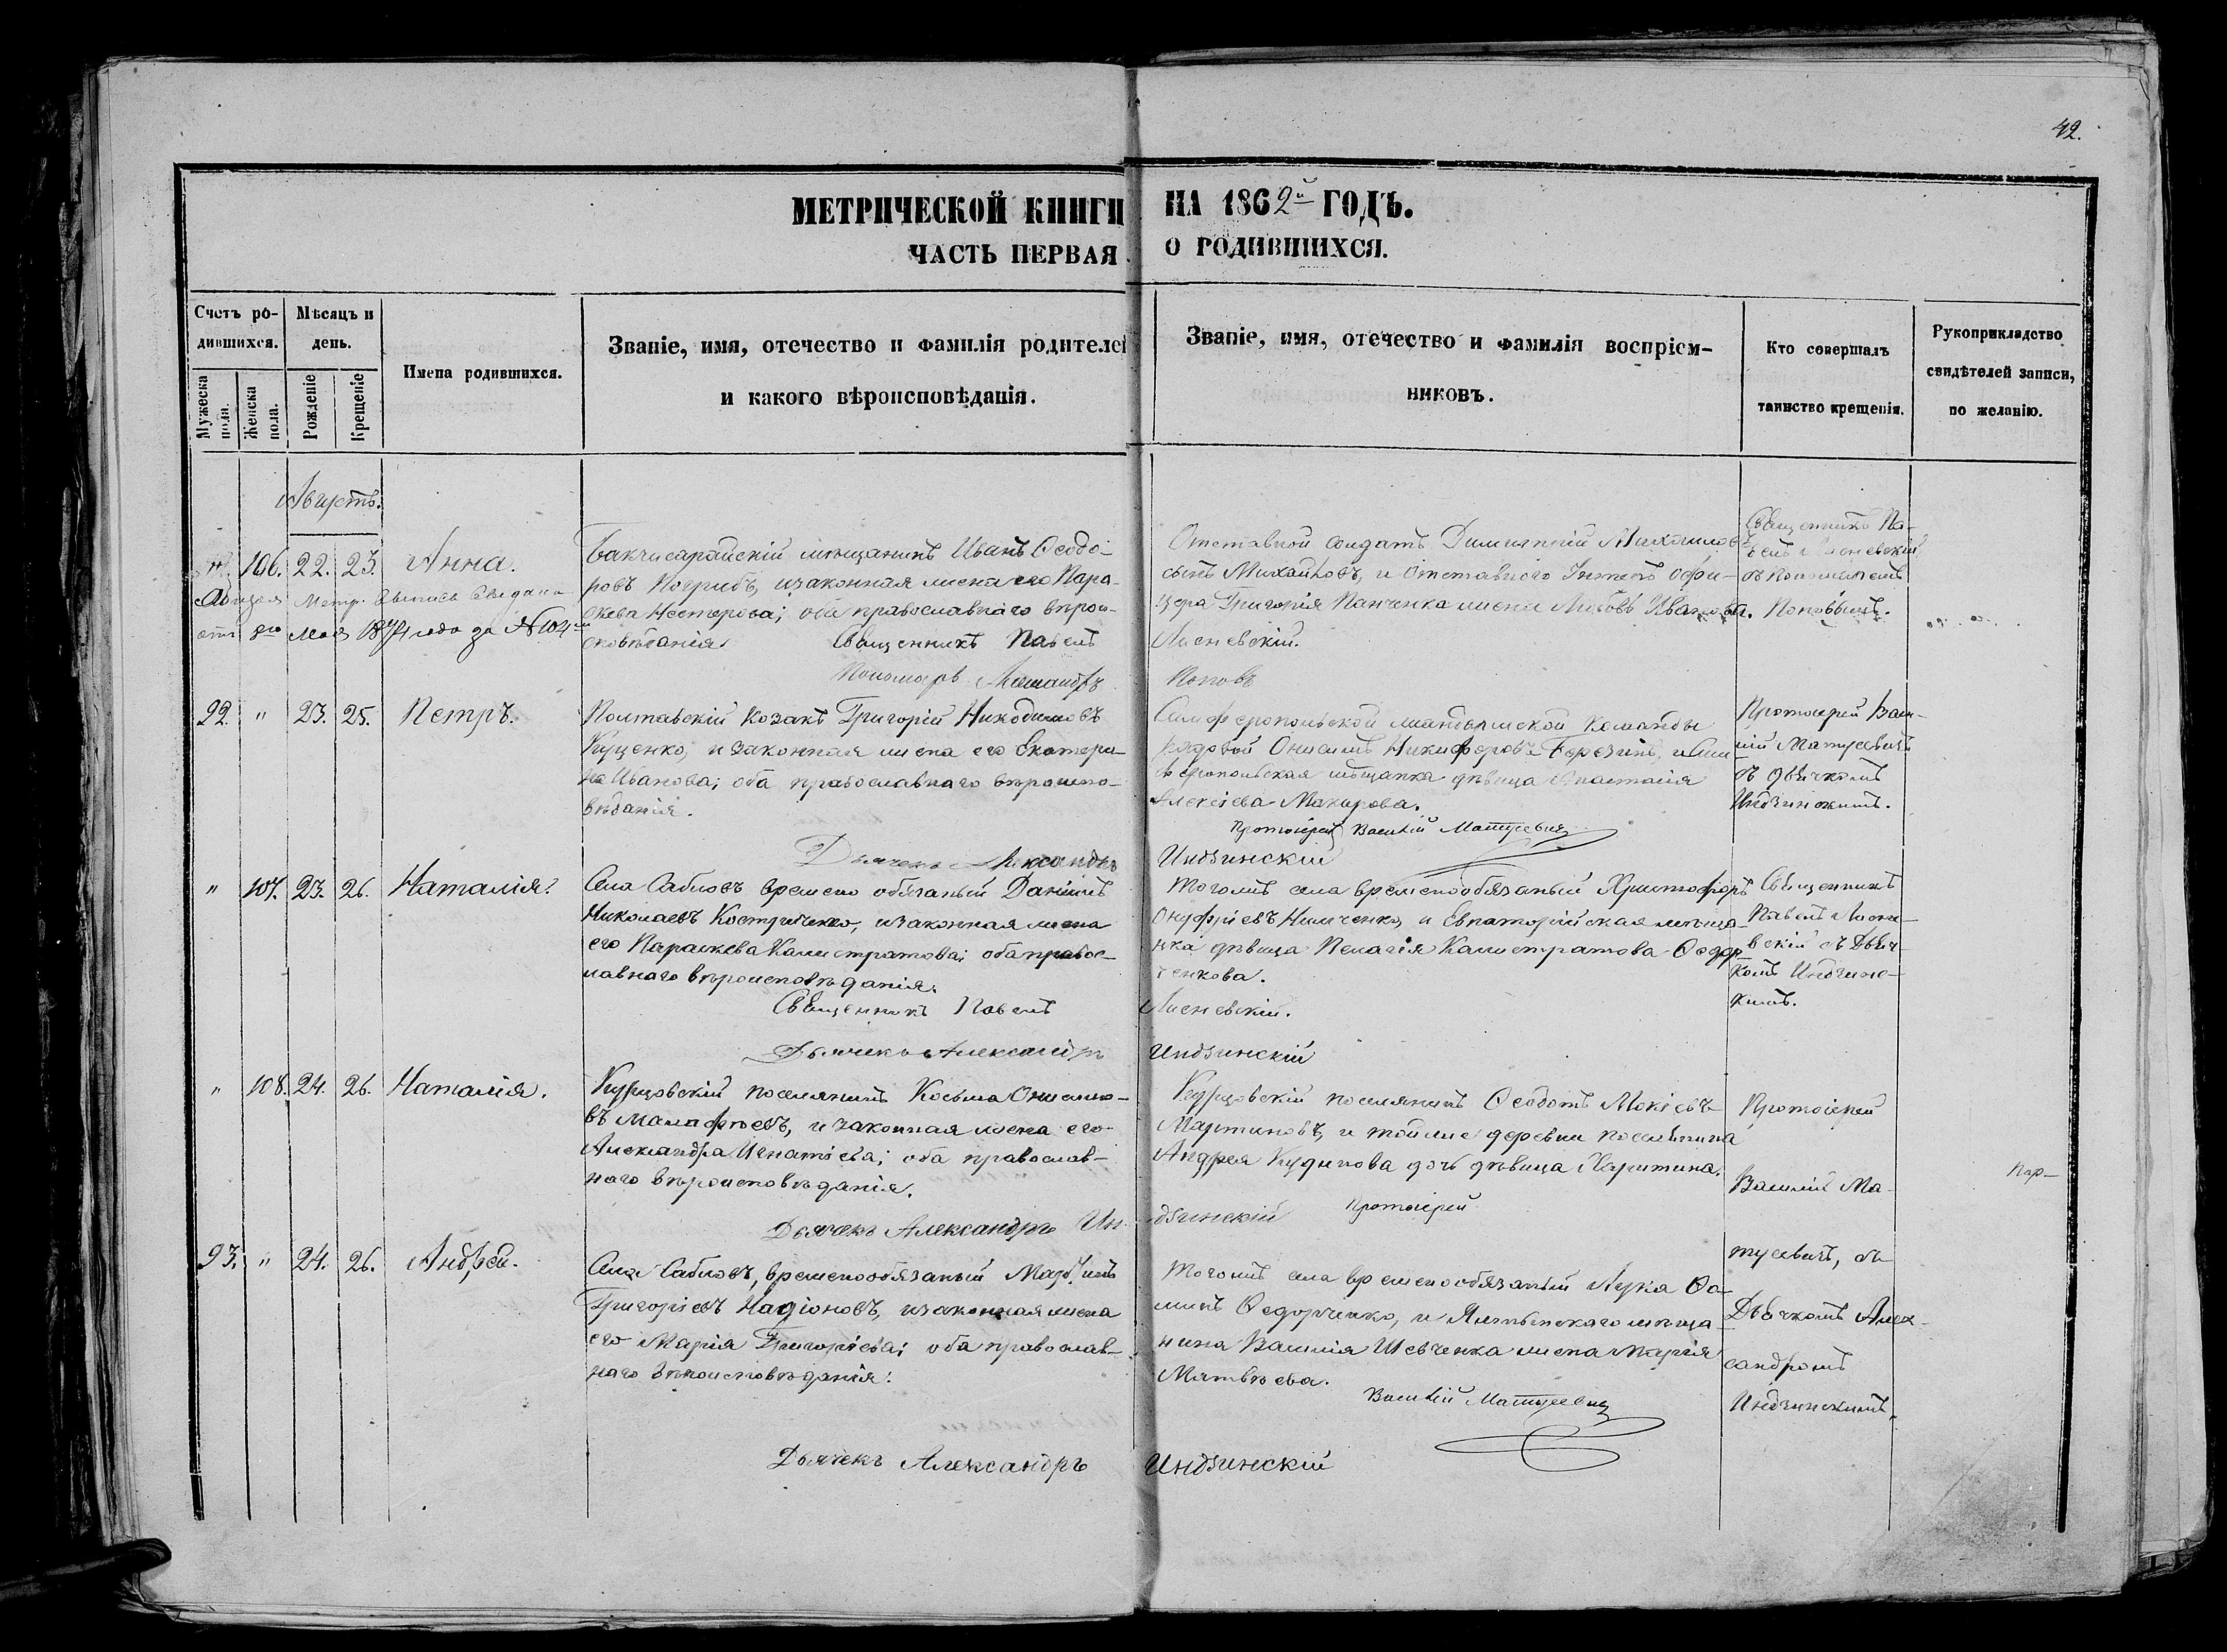 42.
МЕТРИЧЕСКОЙ КНИГИ НА 1862й ГОДЪ.
ЧАСТЬ ПЕРВАЯ О РОДИВШИХСЯ.
Счетъ родившихся.
Мѣсяцъ и день.
Имена родившихся.
Званіе, имя, отечество и фамилія родителей
и какого вѣроисповѣданія.
Званіе, имя, отечество и фамилія воспріем-
никовъ.
Кто совершалъ
таинство крещенія.
Рукоприкладство
свидѣтелей записи,
по желанію.
Мужеска пола.
Женска пола.
Рожденіе
Крещеніе
Августъ.
106. 22. 23. Анна.
Метр. выпись выдана
8го Мая 1874 года за №104
Бакчисарайскій мѣщанинъ Иванъ Ѳеодо-
ровъ Погрибъ, и законная жена его Пара-
скева Нестерова; оба православнаго вѣрои-
сповѣданія.
Священникъ Павелъ
Пономарь Александръ
Отставной солдатъ Димитрій Михаиловъ
сынъ Михайловъ, и Отставнаго Унтеръ офи-
цера Григорія Панченка жена Любовь Иванова.
Лисневскій.
Поповъ
Священникъ Па-
велъ Лисневскій
съ Пономаремъ
Поповымъ.
92. " 23. 25. Петръ.
Полтавскій козакъ Григорій Никодимовъ
Куценко, и законная жена его Екатери-
на Иванова; оба православнаго вѣроиспо-
вѣданія.
Дьячекъ Александръ
Симферопольской жандармской команды
рядовой Онисимъ Никифоровъ Березинъ, и Сим-
ферополькая мѣщанка дѣвица Анастасія
Алексіева Макарова.
Протоіерей Василій Матусевич
Индзинскій
Протоіерей Васи-
лій Матусевичъ
съ Дьячкомъ
Индзинскимъ.
" 107. 23. 26. Наталія.
Села Сабловъ времено обязаный Даніилъ
Николаевъ Костриченко, и законная жена
его Параскева Калистратова; оба правос-
лавнаго вѣроисповѣданія.
Священникъ Павелъ
Дьячекъ Александръ
Тогожъ села временообязаный Христофоръ
Онуфріевъ Ниличенко, и Евпаторійская мѣща-
нка дѣвица Пелагія Калистратова Ѳедор-
ченкова.
Лисневскій.
Индзинскій
Священникъ
Павелъ Лисне-
вскій съ Дьяч-
комъ Индзинс-
кимъ.
" 108. 24. 26. Наталія.
Курцовскій поселянинъ Косьма Онисимо-
въ Малафѣевъ, и законная жена его
Александра Игнатіева; оба православ-
наго вѣроисповѣданія.
Дьячекъ Александръ Ин-
Курцовскій поселянинъ Ѳеодотъ Мокіевъ
Мартиновъ, и тойже деревни поселянина
Андрея Кудинова дочь дѣвица Харитина.
Протоіерей
дзинскій
Протоіерей
Василій Ма-
тусевичъ, съ
Дьячкомъ Алек-
сандромъ
Индзинскимъ.
93. " 24. 26. Андрей.
Села Сабловъ, временообязаный
Григоріевъ Надіоновъ, и законная жена
его Марія Григоріева; оба православ-
наго вѣроисповѣданія.
Дьячекъ Александръ
Тогожъ села временообязаный Лука Ѳо-
минъ Ѳедорченко, и Ялтынскаго мѣща-
нина Василія Шевченка жена Марія
Матвѣева.
Василій Матусевич
Индзинскій